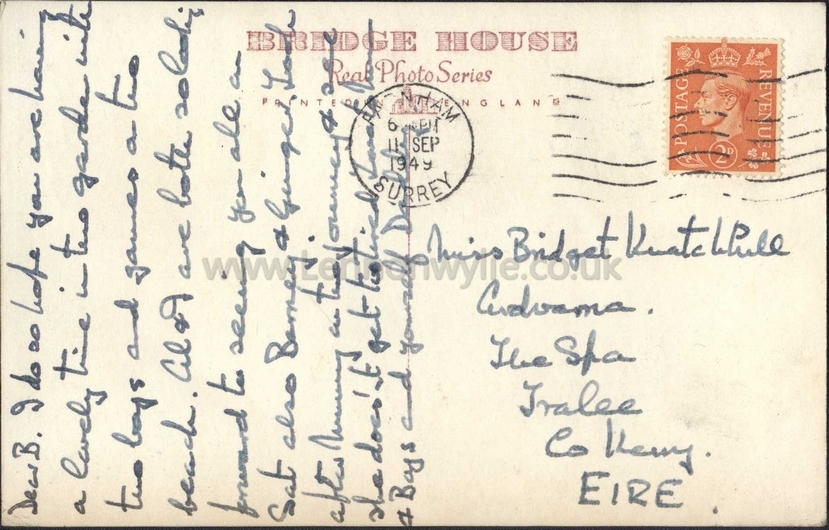 BRIDGE HOUSE
Real Photo Series
PRINTED ENGLAND
FARNHAM
6 PM
11 SEP
1949
SURREY
POSTAGE
REVENUE
2D
Miss Bridget Knatchbull
The Spa
Tralee
Co Kerry.
EIRE
Dear B. I do so hope you are having
a lovely time in the garden with
the boys and games on the
beach. & I are both so looking
forward to seeing you all on
Sat also Barney & Ginger. Look
after Mummy on the journey & see
she does't get too tired. Love
& Boys and yourself
www.Londonwylie.co.uk